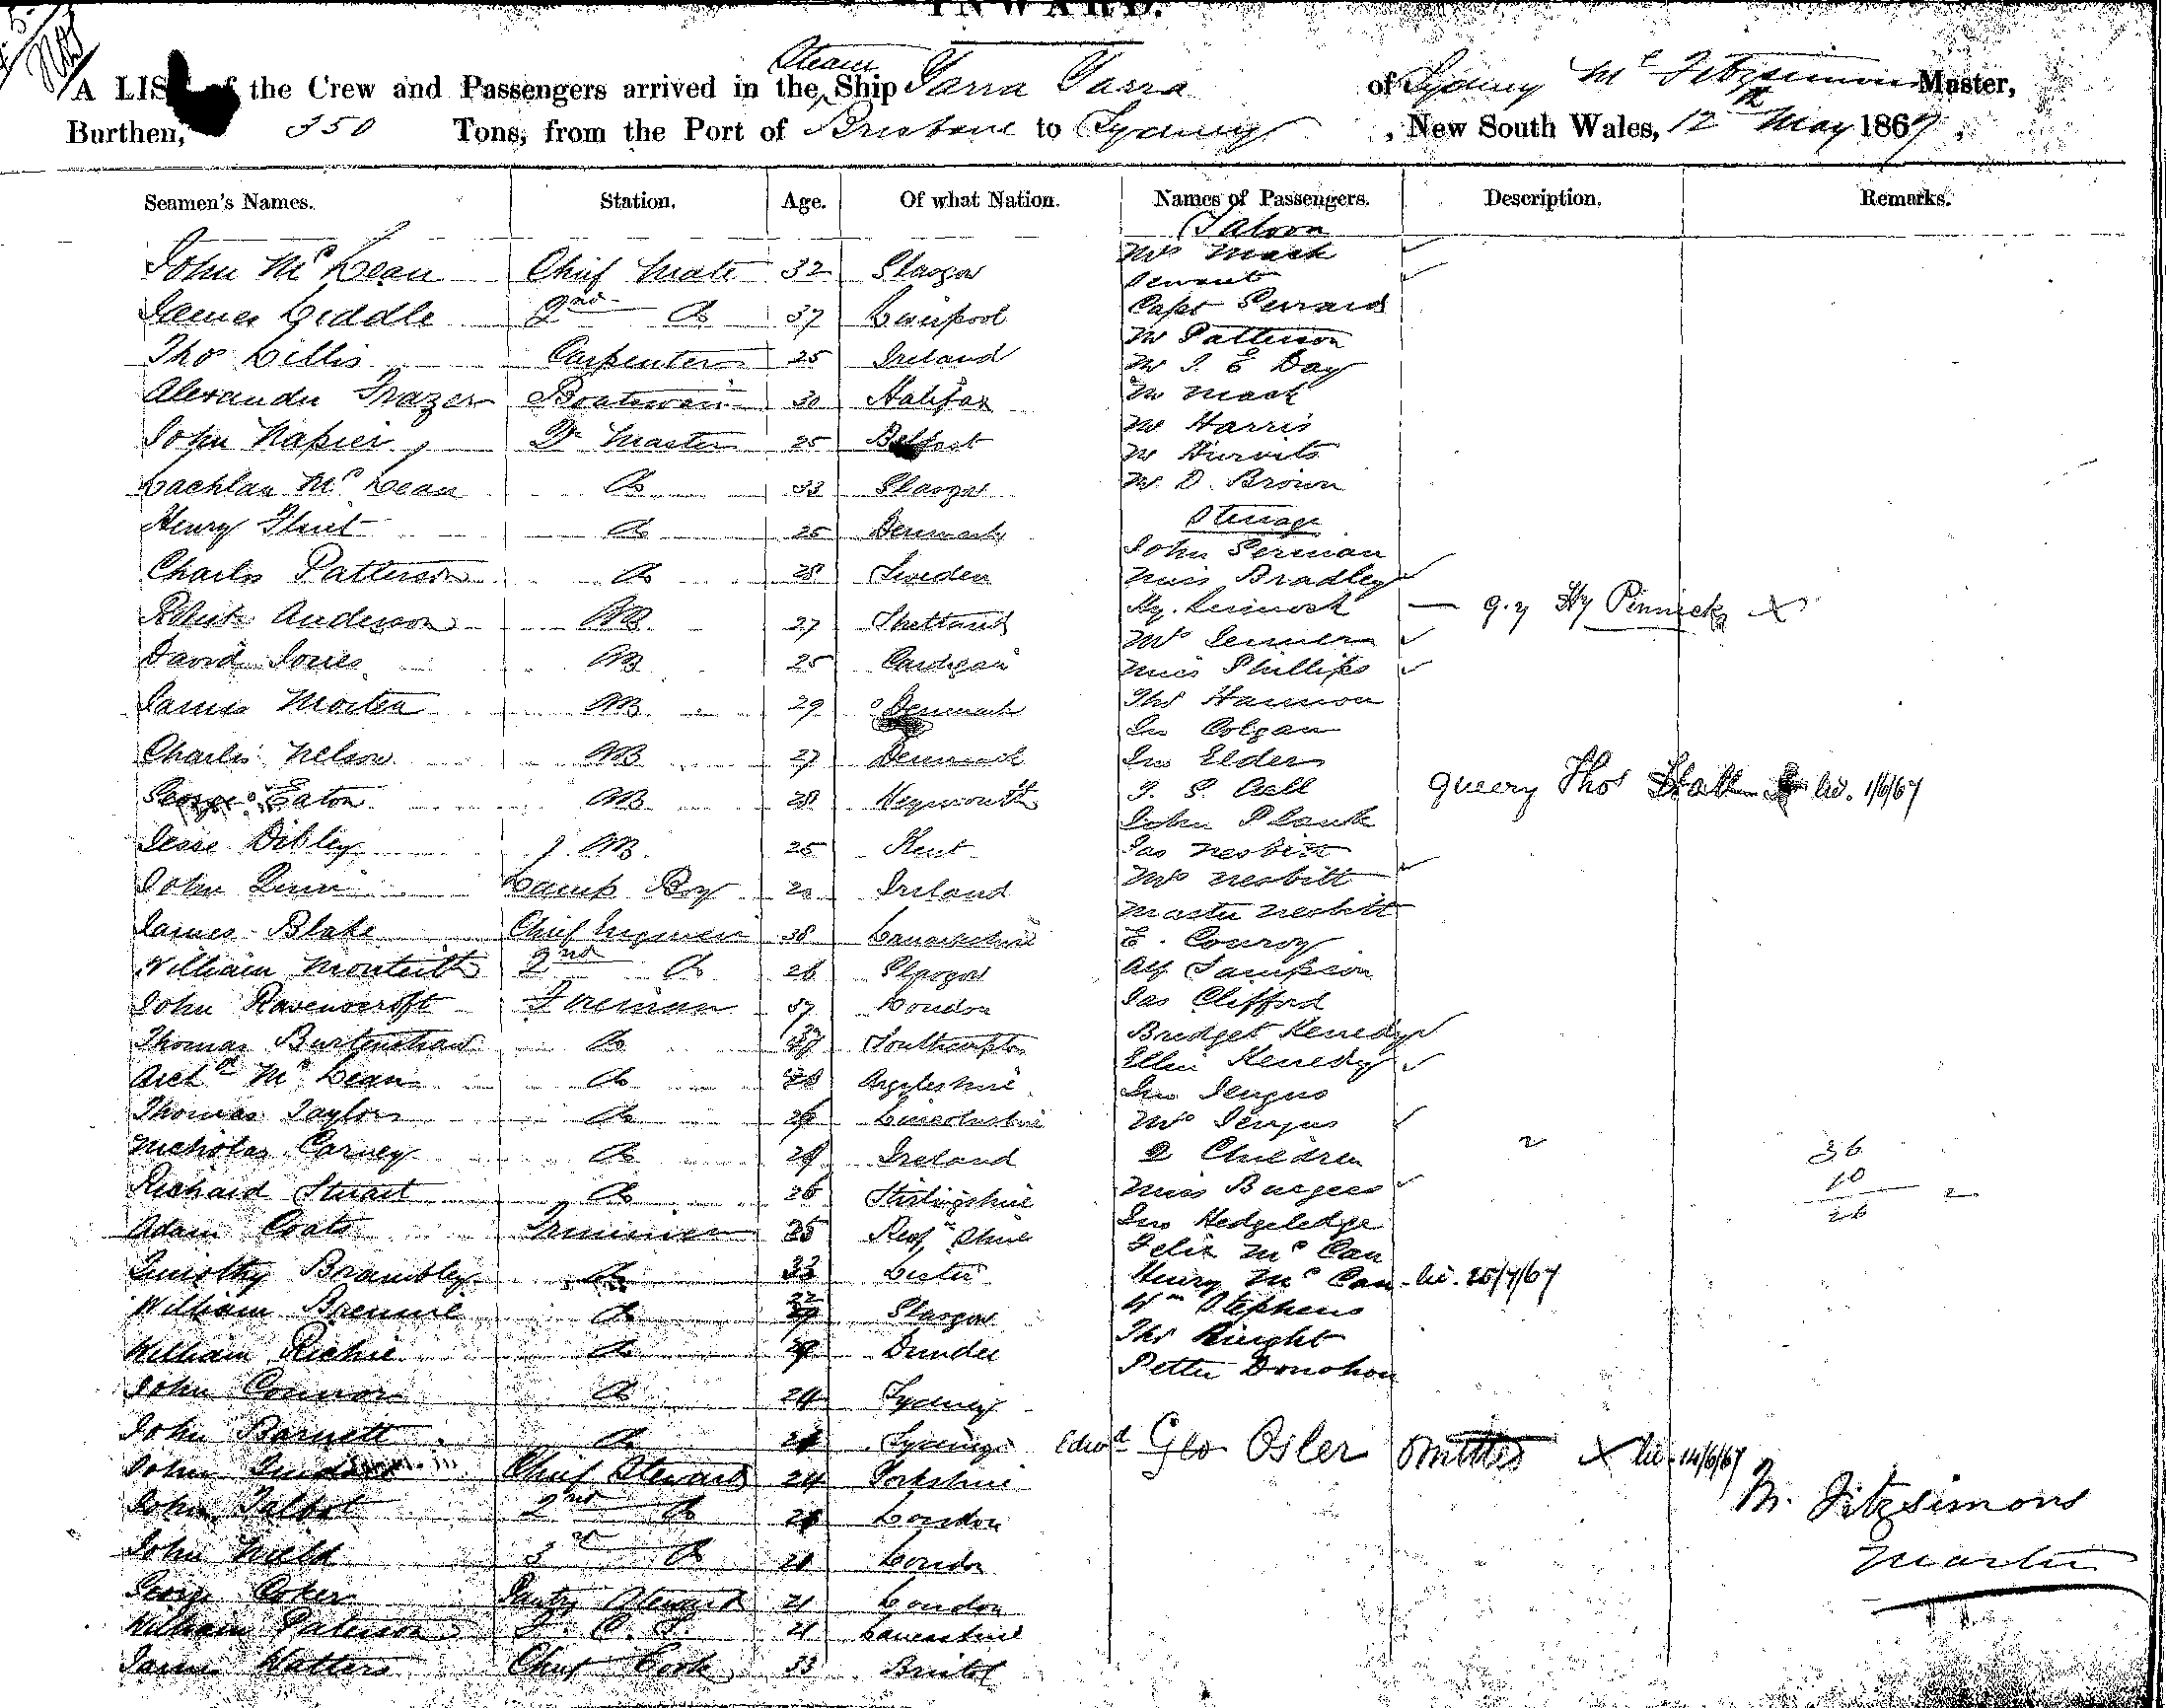 INWARD.
Steam
A LIST of the Crew and Passengers arrived in the Ship Yarra Yarra of Sydney Mc Fitzsimons Master,
Burthen, 350 Tons, from the Port of Brisbane to Sydney, New South Wales, 12th May 1867,
Seamen's Names. Station. Age. Of what Nation. Names of Passengers. Description. Remarks.
John McLean Chief Mate 32 Glasgow
James Liddle 2nd Do 37 Liverpool
Thos Lillis Carpenter 25 Ireland
Alexander Frazer Boatswain 30 Halifax
John Napier Master 25 Belfast
Lachlan McLean Do 33 Glasgow
Henry Do 25 Denmark
Charles Patterson Do 28 Sweden
Robert Anderson AB 27 Shetland
David Jones AB 25 Cardigan
James Morten AB 29 Denmark
Charles Nelson AB 27 Denmark
George Eaton AB 28 Weymouth
Jesse Dibley AB 25 Kent
John Quin Lamp Boy 20 Ireland
James Blake Chief Engineer 38 Lanarkshire
William Monteith 2nd Do 26 Glasgow
John Ravenscroft Fireman 37 London
Thomas Burtenshaw Do Southampton
Archd McLean Do Argyleshire
Thomas Taylor Do 29 Lincolnshire
Nicholas Carney Do 29 Ireland
Richard Stuart Do 26 Stirlingshire
Adam Coats Trimmer 25 Renfshire
Timothy Brambley Do 33
William Do Glasgow
William Richie Do Dundee
John Connor Do 24 Sydney
John Barnett Do Sydney
John Chief Steward 24 Yorkshire
John Talbot 2nd Do London
John 3rd Do London
George Coker Pantry Steward 21 London
William Paterson 21 Lancashire
James Watters Chief Cook 33 Bristol
Saloon
Mrs Mack
Servant
Capt
Mr Patterson
Mr J. E Day
Mr Mack
Mr Harris
Mr
Mr D. Brown
Steerage
John
Miss Bradley
Hy. — q.y Hy Pinnick X
Mrs
Miss Phillips
Thos Hannon
Jno Colgan
Jno Elder
query Thos lic. 1/6/67
John Plank
Jas Nesbitt
Mrs Nesbitt
Master Nesbitt
E. Conroy
Alf Sampson
Jas Clifford
Bridget Kenedy
Ellen Kenedy
Jno
Mrs
2 Children 2
Miss Burgess
36
10
26 2
Jno Hedgeledge
Felix McCan
Henry McCan - lic. 25/7/67
Wm Stephens
Thos Knight
Petter Donohou
Edwd Geo Osler omitted X lic. 14/6/67
M. Fitzsimons
Master